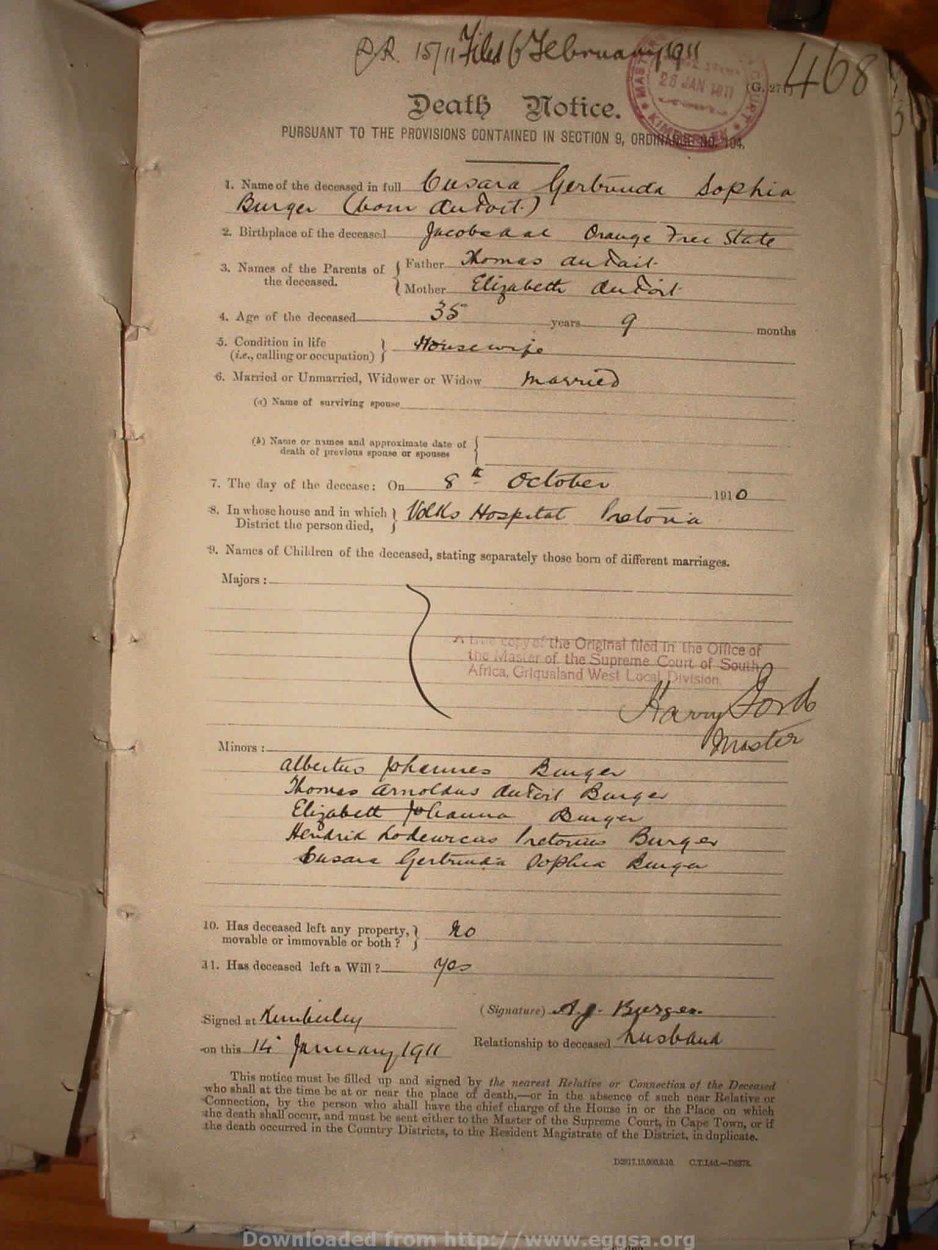 15/11 Filed 6 February 1911
468
26 JAN 1911
(G. 27)
Death Notice.
PURSUANT TO THE PROVISIONS CONTAINED IN SECTION 9, ORDINANCE NO. 104.
1. Name of the deceased in full Susara Gertruida Sophia
Burger (born du Toit.)
2. Birthplace of the deceased Jacobsdal Orange Free State
3. Names of the Parents of the deceased. Father Thomas du Toit
Mother Elizabeth du Toit
4. Age of the deceased 35 years 9 months
5. Condition in life (i.e., calling or occupation) Housewife
6. Married or Unmarried, Widower or Widow Married
(a) Name of surviving spouse
(b) Name or names and approximate date of death of previous spouse or spouses
7. The day of the decease: On 8th October 1910
8. In whose house and in which District the person died, Volks Hospital Pretoria
9. Names of Children of the deceased, stating separately those born of different marriages.
Majors:
A true copy of the Original filed in the Office of
the Master of the Supreme Court of South
Africa, Griqualand West Local Division.
Harry
Master
Minors:
Albertus Johannes Burger
Thomas Arnoldus du Toit Burger
Elizabeth Johanna Burger
Hendrik Lodewicus Pretorius Burger
Susara Gertruida Sophia Burger
10. Has deceased left any property, movable or immovable or both? No
11. Has deceased left a Will? Yes
Signed at Kimberley (Signature) A. J. Burger.
on this 14 January 1911 Relationship to deceased husband
This notice must be filled up and signed by the nearest Relative or Connection of the Deceased
who shall at the time be at or near the place of death,—or in the absence of such near Relative or
Connection, by the person who shall have the chief charge of the House in or the Place on which
the death shall occur, and must be sent either to the Master of the Supreme Court, in Cape Town, or if
the death occurred in the Country Districts, to the Resident Magistrate of the District, in duplicate.
Downloaded from http://www.eggsa.org